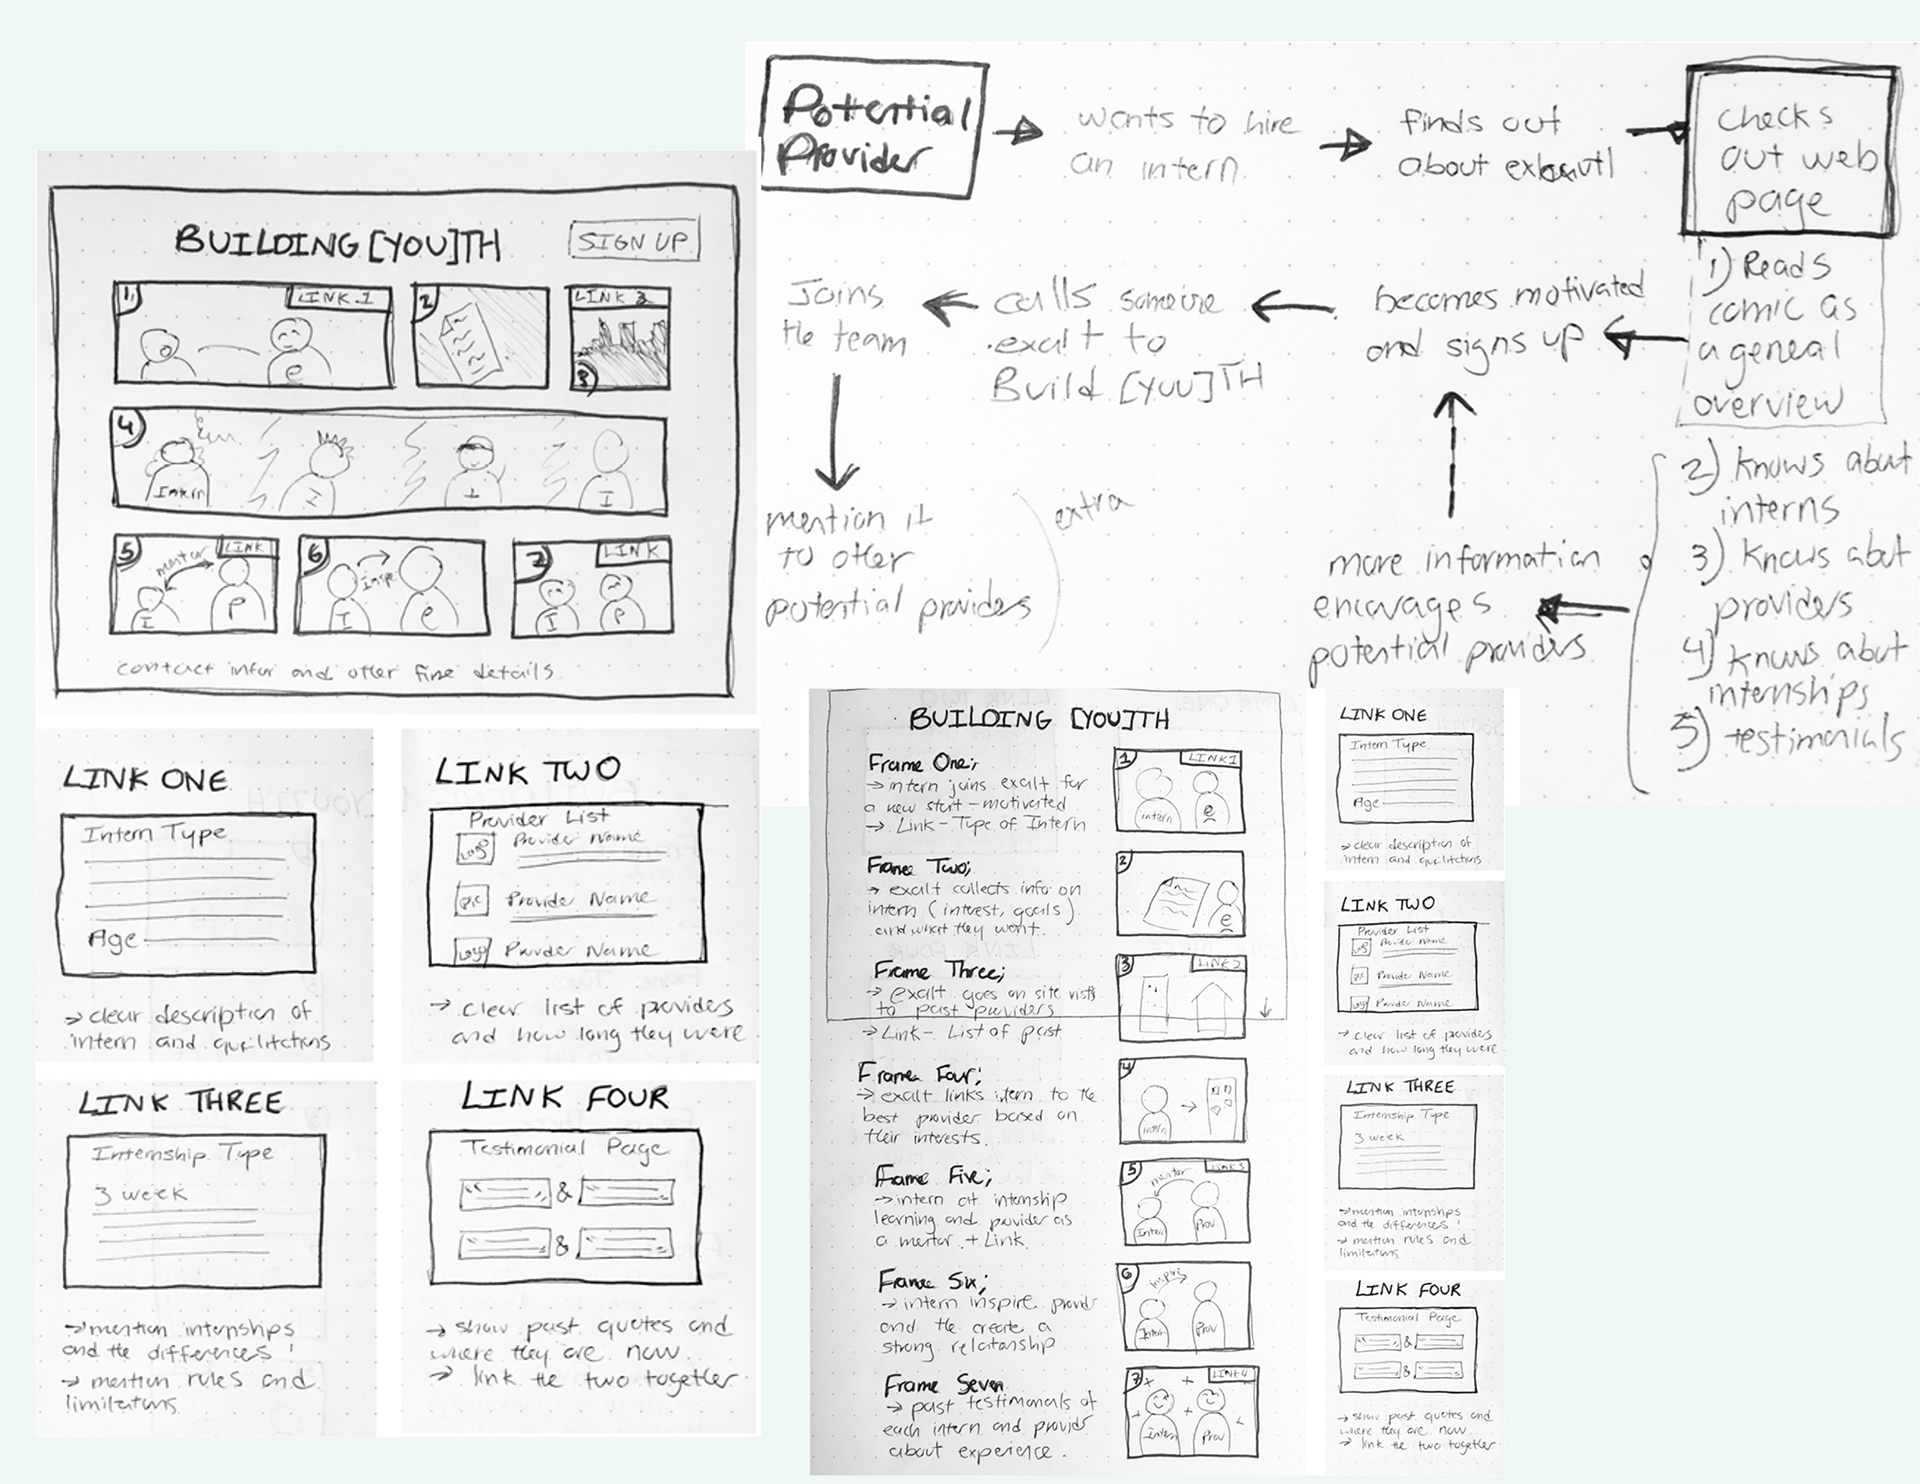 BUILDING [YOU]TH
SIGN UP
1 LINK 1
e
2
LINK 3
3
4
Intern
I
I
I
5 mentor LINK
I P
6 inspe
I e
7 LINK
I P
contact infor and other fine details
Potential
Provider
wants to hire
an intern
finds out
about
checks
out web
page
1) Reads
comic as
a geneal
overview
2) knows about
interns
3) knows abut
providers
4) knows abut
internships
5) testimonials
more information
encourages
potential providers
becomes motivated
and signs up
calls someone
exalt to
Build [YOU]TH
Joins
the team
mention it
to other
potential providers
extra
LINK ONE
Intern Type
Age
→ clear description of
intern and
LINK TWO
Provider List
Logo Provider Name
pic Provider Name
Logo Provider Name
→ clear list of providers
and how long they were
LINK THREE
Internship Type
3 week
→ mention internships
and the differences !
→ mention rules and
limitations
LINK FOUR
Testimonial Page
&
&
→ show past quotes and
where they are now
→ link the two together
BUILDING [YOU]TH
Frame One;
→ intern joins exalt for
a new start - motivated
→ Link - Type of Intern
1 LINK 1
intern e
Frame Two;
→ exalt collects info on
intern (interest, goals)
and what they want.
2
e
Frame Three;
→ exalt goes on site visits
to past providers
→ Link - List of past
3 LINK 2
Frame Four;
→ exalt links intern to the
best provider based on
their interests.
4
intern
Frame Five;
→ intern at internship
learning and provider as
a mentor + Link
5 mentor LINK 3
Intern Prov
Frame Six;
→ intern inspire provider
and the create a
strong relationship
6 inspire
Intern Prov
Frame Seven
→ past testimonials of
each intern and provider
about experience.
7 LINK 4
Intern Prov
LINK ONE
Intern Type
Age
→ clear description of
intern and
LINK TWO
Provider List
Logo Provider Name
pic Provider Name
Logo Provider Name
→ clear list of providers
and how long they were
LINK THREE
Internship Type
3 week
→ mention internships
and the differences !
→ mention rules and
limitations
LINK FOUR
Testimonial Page
&
&
→ show past quotes and
where they are now
→ link the two together